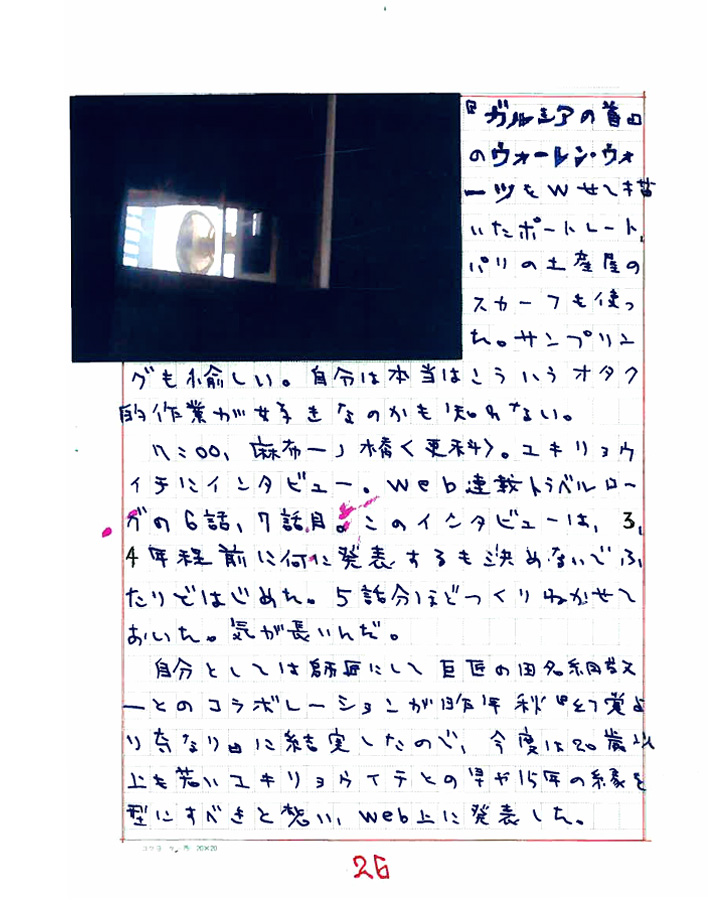 『ガルシアの首』
のウォーレン・ウォ
ーツをWせて描
いたポートレート、
パリの土産屋の
スカーフも使っ
た。サンプリン
グも愉しい。自分は本当はこういうオタク
的作業が好きなのかも知れない。
:00、麻布一ノ橋〈更科〉。ユキリョウ
イチにインタビュー。Web連載トラベルロー
グの6話、7話目。このインタビューは、3、
4年程前に何に発表するも決めないでふ
たりではじめた。5話分ほどつくりねかせて
おいた。気が長いんだ。
自分としては師匠にして巨匠の田名網敬
一とのコラボレーションが昨年秋『幻覚よ
り奇なり』に結実したので、今度は20歳以
上も若いユキリョウイチとの早や15年の縁を
型にすべきと想い、Web上に発表した。
コクヨ 20×20
26